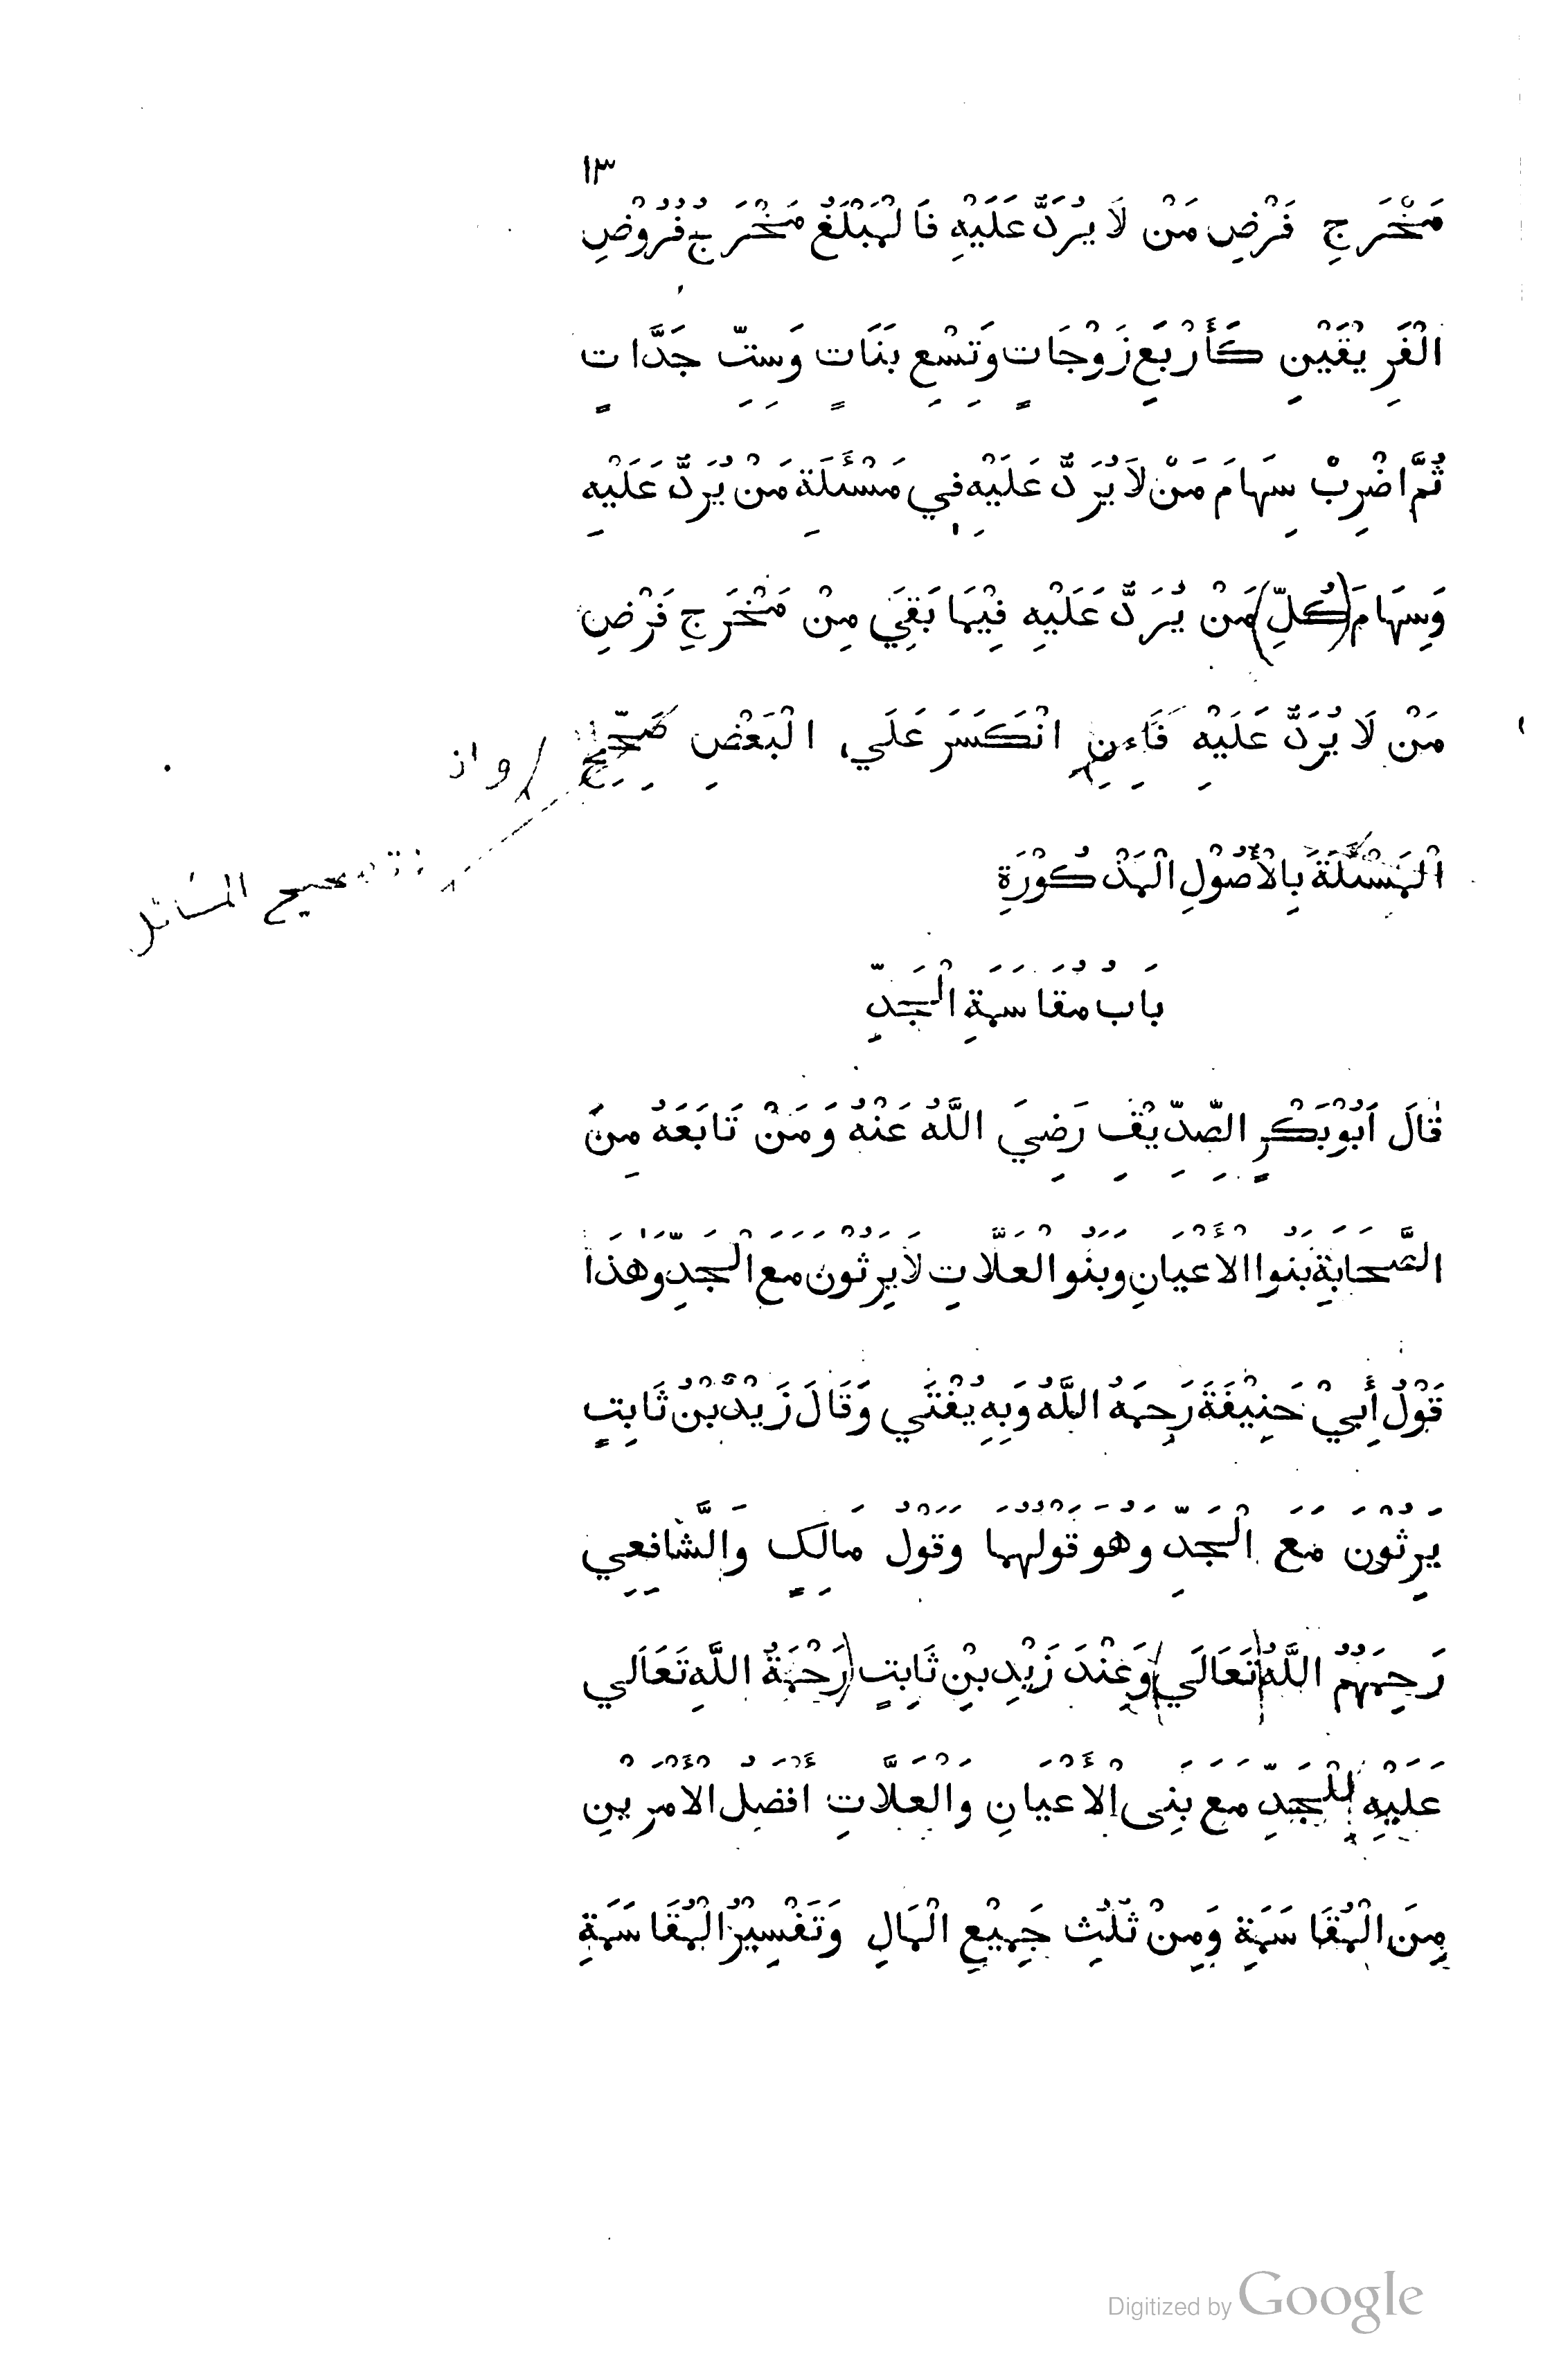 ١٣
مَخْرَجِ فَرْضِ مَنْ لَا يُرَدُّ عَلَيْهِ فَالْمَبْلَغُ مَخْرَجُ فُرُوْضِ
الْفَرِيْقَيْنِ كَأَرْبَعِ زَوْجَاتٍ وَتِسْعِ بَنَاتٍ وَسِتِّ جَدَّاتٍ
ثُمَّ اضْرِبْ سِهَامَ مَنْ لَا يُرَدُّ عَلَيْهِ فِي مَسْئَلَةِ مَنْ يُرَدُّ عَلَيْهِ
وَسِهَامَ (كُلِّ) مَنْ يُرَدُّ عَلَيْهِ فِيْمَا بَقِيَ مِنْ مَخْرَجِ فَرْضِ
مَنْ لَا يُرَدُّ عَلَيْهِ فَاءِنِ انْكَسَرَ عَلَي الْبَعْضِ
وان
تصحيح المسائل
الْمَسْئَلَةَ بِالْأُصُوْلِ الْمَذْكُوْرَةِ
بَابُ مُقَاسَمَةِ الْجَدِّ
قَالَ اَبُوْبَكْرٍ الصِّدِّيْقِ رَضِيَ اللَّهُ عَنْهُ وَمَنْ تَابَعَهُ مِنَ
الصَّحَابَةِ بَنُوا الْأَعْيَانِ وَبَنُو الْعَلَّاتِ لَا يَرِثُوْنَ مَعَ الْجَدِّ وَهَذَا
قَوْلُ أَبِيْ حَنِيْفَةَ رَحِمَهُ اللَّهُ وَبِهِ يُفْتَي وَقَالَ زَيْدُ بْنُ ثَابِتٍ
يَرِثُوْنَ مَعَ الْجَدِّ وَهُوَ قَوْلُهُمَا وَقَوْلُ مَالِكٍ وَالشَّافِعِي
رَحِمَهُمُ اللَّهُ (تَعَالَي) وَعِنْدَ زَيْدِ بْنِ ثَابِتٍ (رَحْمَةُ اللَّهِ تَعَالَي
عَلَيْهِ لِلْجَدِّ مَعَ بَنِى الْأَعْيَانِ وَالْعَلَّاتِ أَفْضَلُ الْأَمْرَيْنِ
مِنَ الْمُقَاسَمَةِ وَمِنْ ثُلُثِ جَمِيْعِ الْمَالِ وَتَفْسِيْرُ الْمُقَاسَمَةِ
Digitized by Google